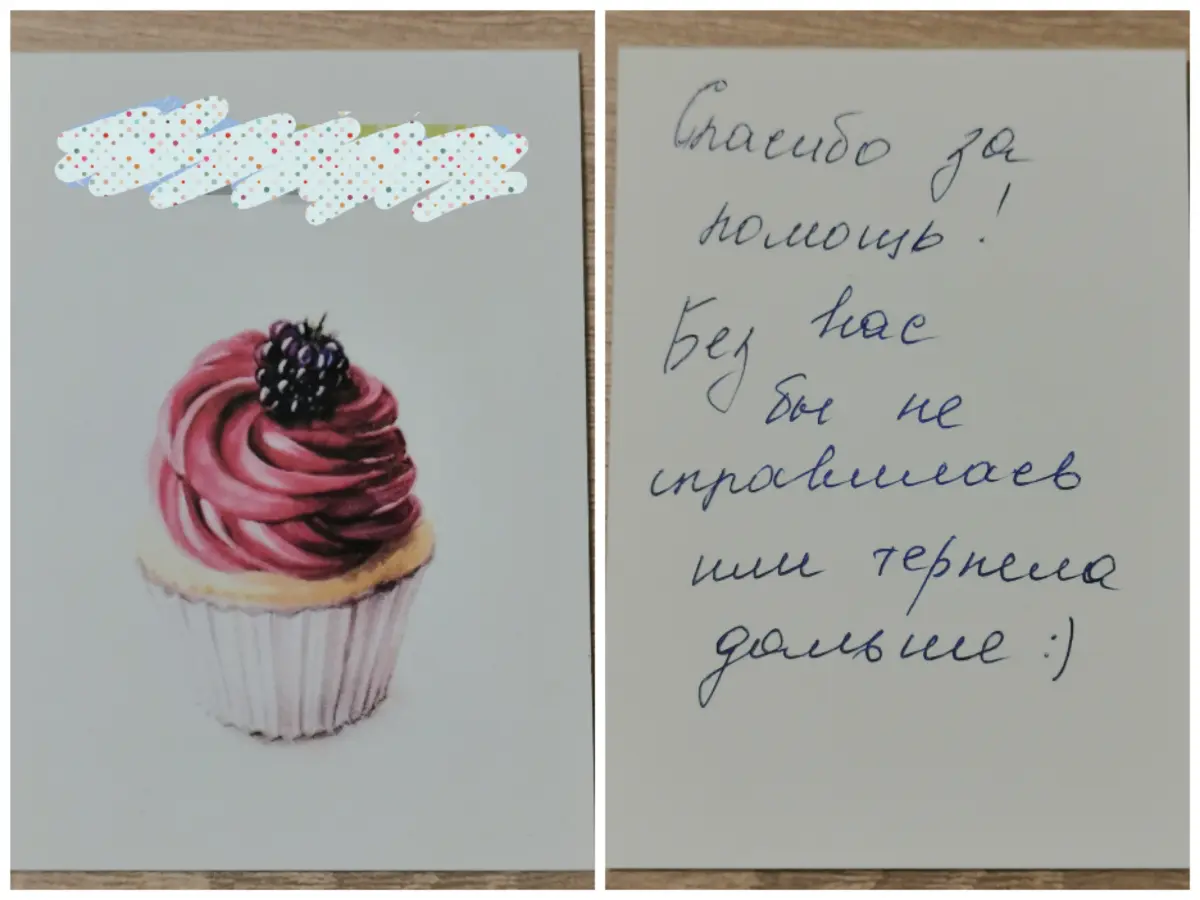 Спасибо за
помощь!
Без вас
бы не
справилась
или терпела
дальше :)